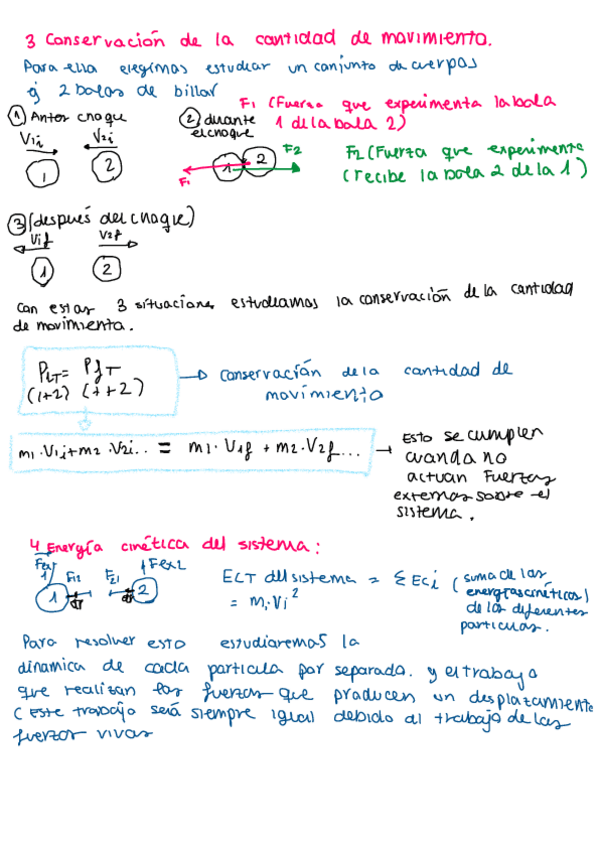 3 Conservación de la cantidad de movimiento.
Para ello elegimos estudiar un conjunto de cuerpos
ej 2 bolas de billar
① Antes choque
V1i V2i
1 2
② durante
el choque
F1 (Fuersa que experimenta la bola
1 de la bola 2)
1 2
F1
F2
F2 (Fuerza que experimenta
(recibe la bola 2 de la 1)
③ (después del choque)
V1f V2f
1 2
Con estas 3 situaciones estudiamos la conservación de la cantidad
de movimiento.
PiT = PfT
(1+2) (1+2)
Conservación de la cantidad de
movimiento
m1·V1i+m2·V2i.. = m1·V1f + m2·V2f...
Esto se cumplen
cuando no
actuan Fuerzas
externas sobre el
sistema.
4 Energía cinética del sistema:
Fex1 F12 F21 Fex2
1 2
dr dr
ECT del sistema = Σ Eci (suma de las
energías cinéticas)
de las diferentes
particulas.
= mi·Vi²
Para resolver esto estudiaremos la
dinamica de cada particula por separado. y el trabajo
que realizan las fuerzas que producen un desplazamiento
(este trabajo será siempre igual debido al trabajo de las
fuerzas vivas